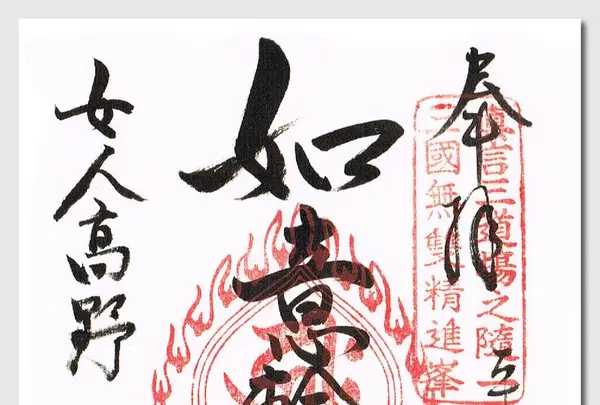 奉拝
眞言三道場之隨一
三國無雙精進峯
如意輪
女人高野